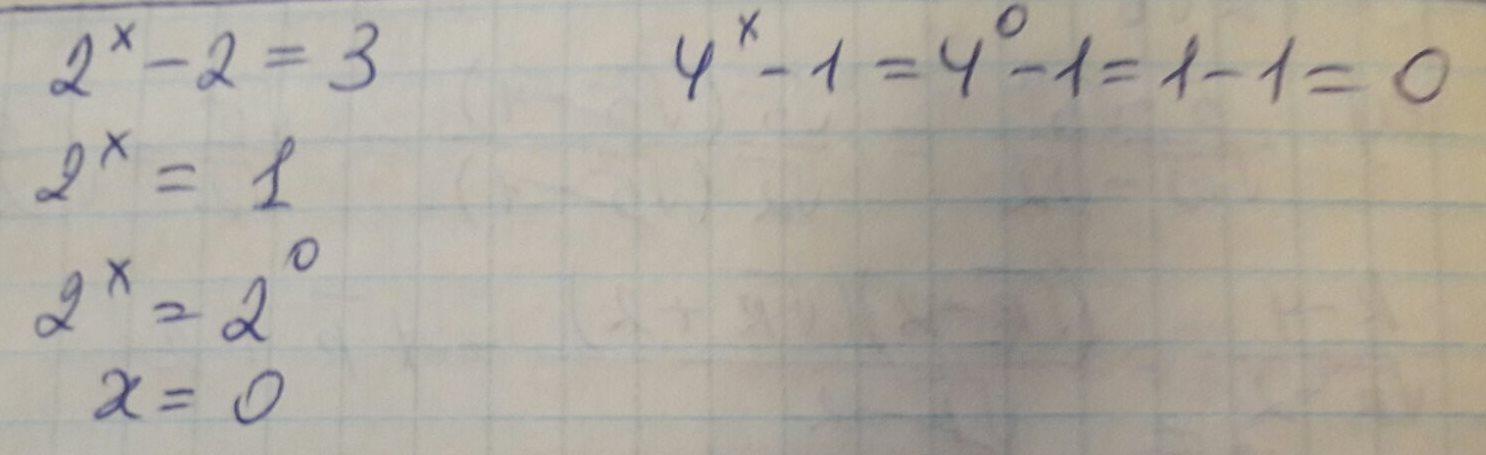 2^x - 2 = 3
2^x = 1
2^x = 2^0
x = 0
4^x - 1 = 4^0 - 1 = 1 - 1 = 0